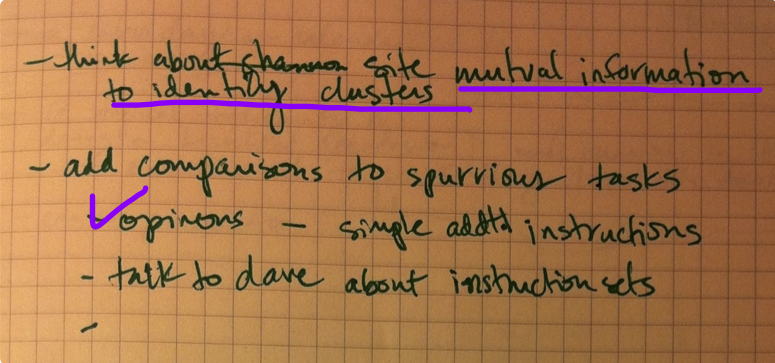 - think about shannon site mutual information
to identify clusters
- add comparisons to spurrious tasks
- opinons - simple added instructions
- talk to dave about instruction sets
-